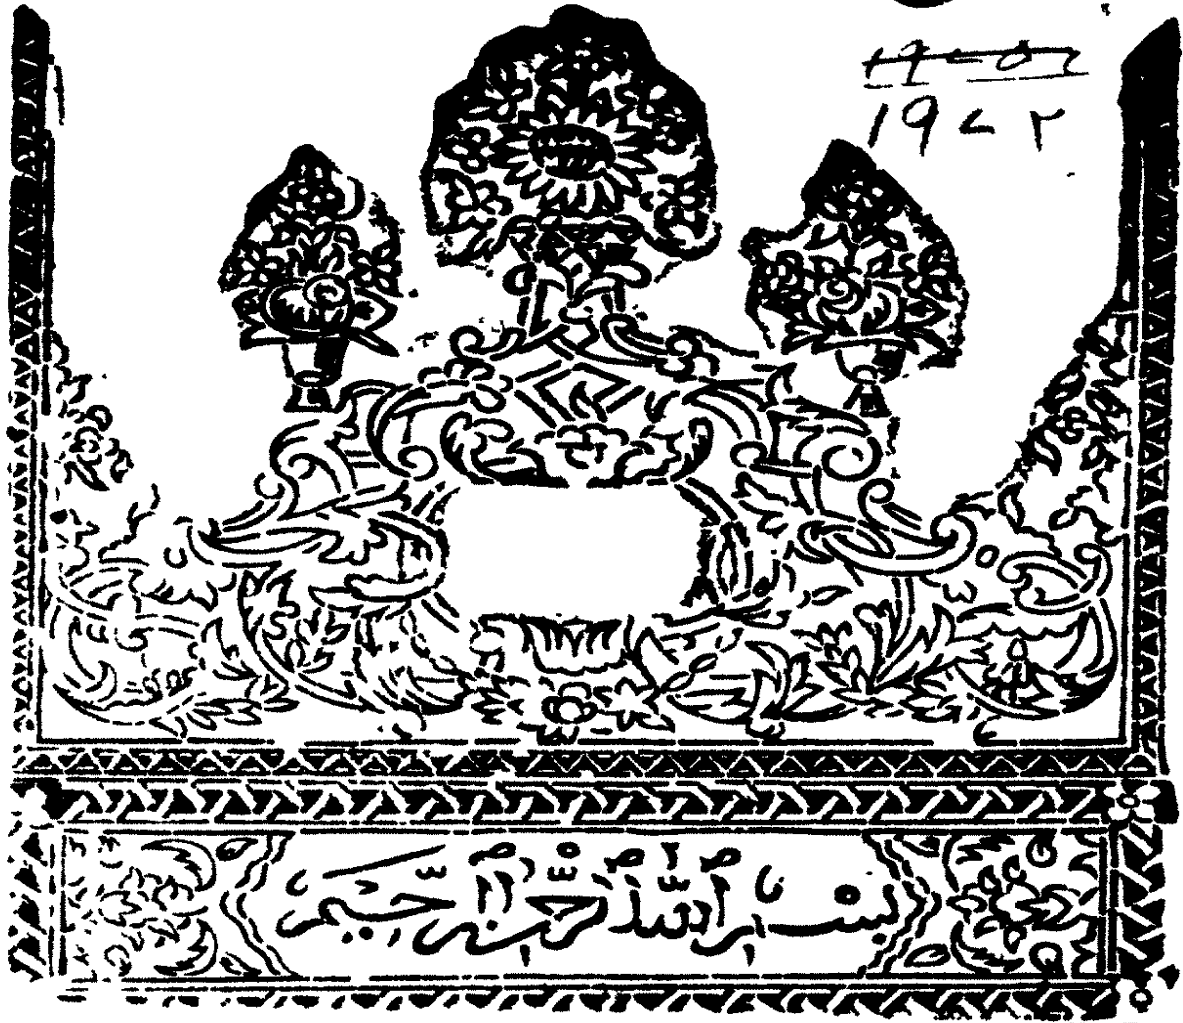 ۱۹۷۲
بسم الله الرحمن الرحيم